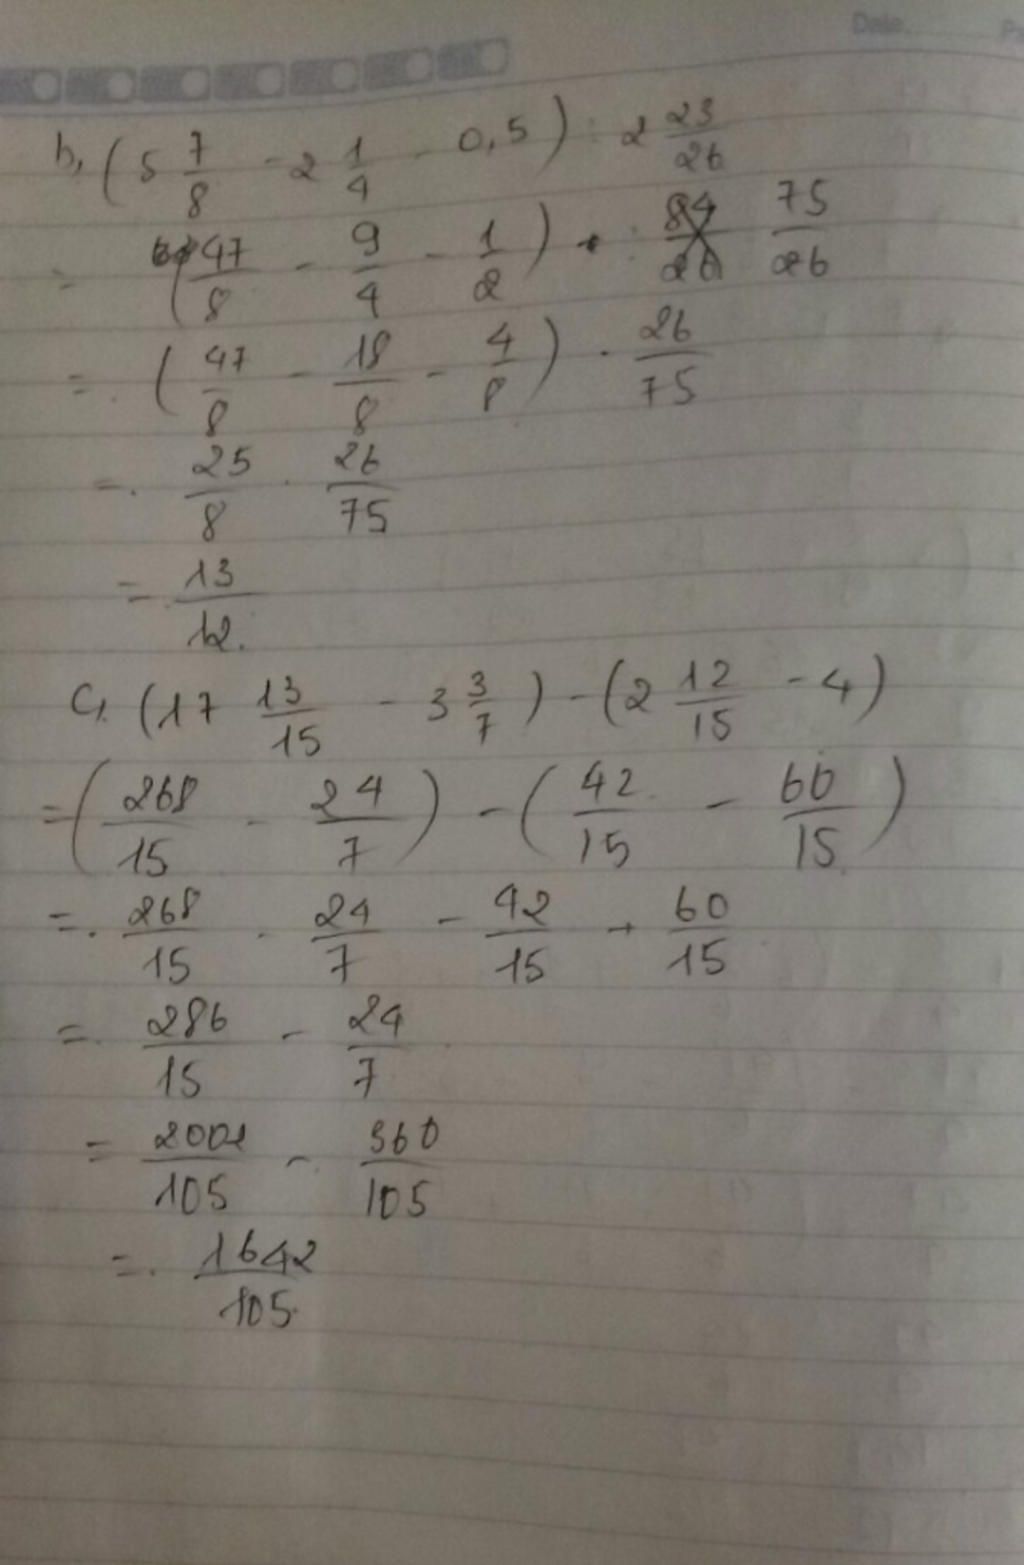 Date.
b, (5 7/8 - 2 1/4 - 0,5) : 2 23/26
= (47/8 - 9/4 - 1/2) : 75/26
= (47/8 - 18/8 - 4/8) . 26/75
= 25/8 . 26/75
= 13/12.
C, (17 13/15 - 3 3/7) - (2 12/15 - 4)
= (268/15 - 24/7) - (42/15 - 60/15)
= 268/15 - 24/7 - 42/15 + 60/15
= 286/15 - 24/7
= 2002/105 - 360/105
= 1642/105